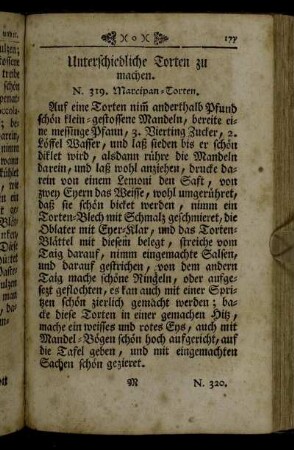 177
Unterschiedliche Torten zu
machen.
N. 319. Marcipan-Torten.
Auf eine Torten nim̃ anderthalb Pfund
schön klein-gestossene Mandeln, bereite ei-
ne messinge Pfann, 3. Vierting Zucker, 2.
Löffel Wasser, und laß sieden bis er schön
diklet wird, alsdann rühre die Mandeln
darein, und laß wohl anziehen, drucke da-
rein von einem Lemoni den Saft, von
zwey Eyern das Weisse, wohl umgerühret,
daß sie schön bicket werden, nimm ein
Torten-Blech mit Schmalz geschmieret, die
Oblater mit Eyer-Klar, und das Torten-
Blättel mit diesem belegt, streiche vom
Taig darauf, nimm eingemachte Salsen,
und darauf gestrichen, von dem andern
Taig mache schöne Ringeln, oder aufge-
setzt geflochten, es kan auch mit einer Spri-
tzen schön zierlich gemacht werden; ba-
che diese Torten in einer gemachen Hitz,
mache ein weisses und rotes Eys, auch mit
Mandel-Bögen schön hoch aufgericht, auf
die Tafel geben, und mit eingemachten
Sachen schön gezieret.
M N. 320.